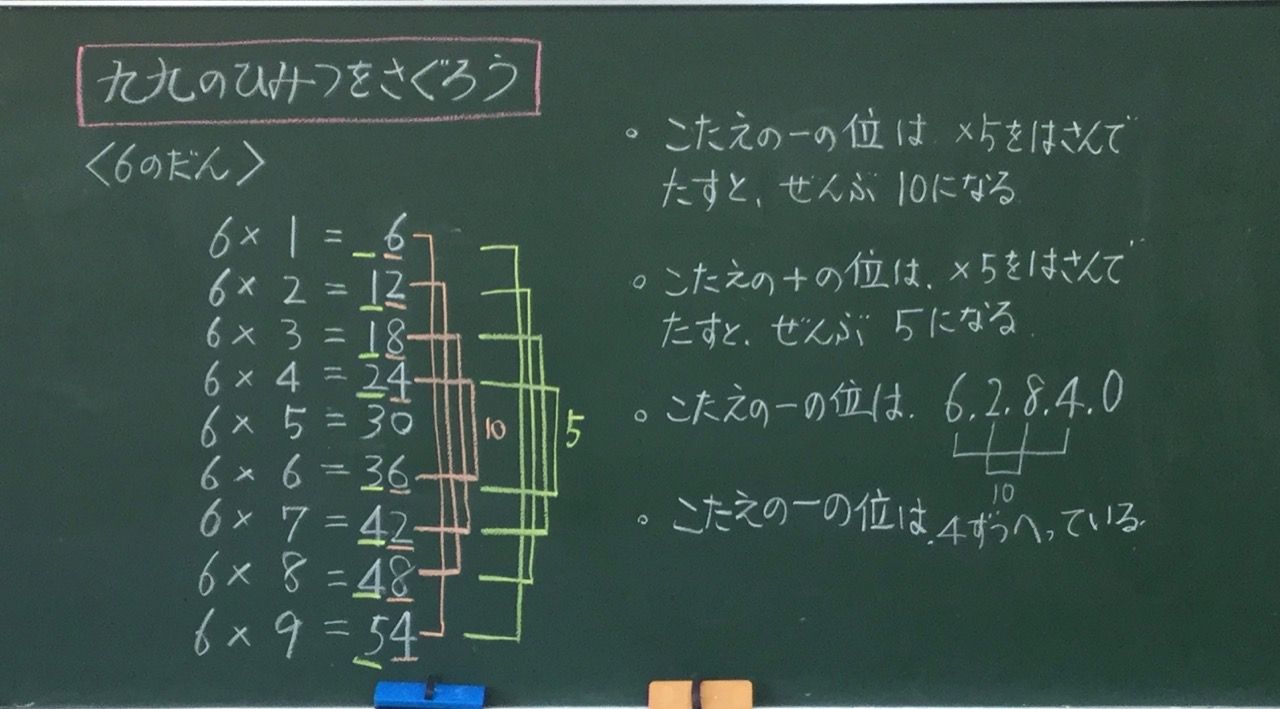 九九のひみつをさぐろう
〈6のだん〉
6 × 1 = 6
6 × 2 = 12
6 × 3 = 18
6 × 4 = 24
6 × 5 = 30
6 × 6 = 36
6 × 7 = 42
6 × 8 = 48
6 × 9 = 54
10
5
。こたえの一の位は ×5をはさんで
たすと、ぜんぶ 10になる
。こたえの十の位は、×5をはさんで
たすと、ぜんぶ 5になる
。こたえの一の位は、6.2.8.4.0
10
。こたえの一の位は、4ずつへっている